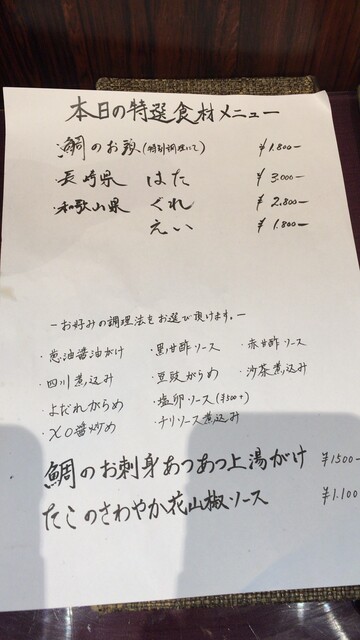 本日の特選食材メニュー
・鯛のお頭(特別調理にて) ¥1.800−
・長崎県 はた ¥3.000−
・和歌山県 ぐれ ¥2.800−
えい ¥1.800−
−お好みの調理法をお選び頂けます。−
・葱油醤油がけ ・黒甘酢ソース ・赤甘酢ソース
・四川煮込み ・豆豉がらめ ・沙茶煮込み
・よだれがらめ ・塩卵ソース(¥500+)
・XO醤炒め ・チリソース煮込み
鯛のお刺身あつあつ上湯がけ ¥1500−
たこのさわやか花山椒ソース ¥1.100